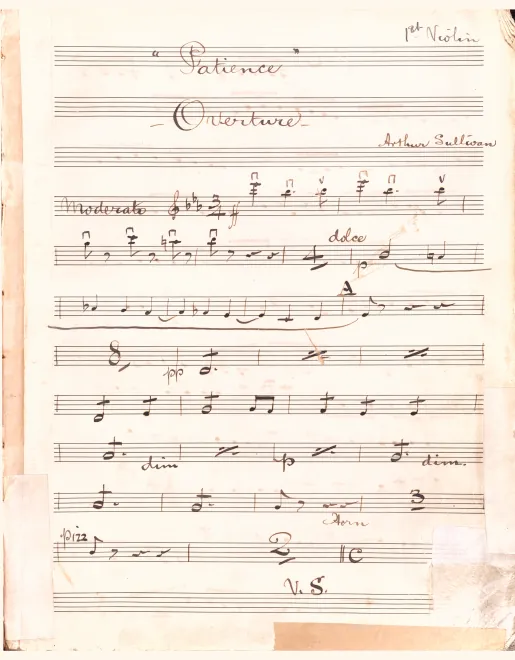 1st Violin
"Patience"
- Overture -
Arthur Sullivan
Moderato 3 4 ff
4 dolce p
A
8 pp
dim p dim.
Horn 3
Pizz 2 C
V. S.